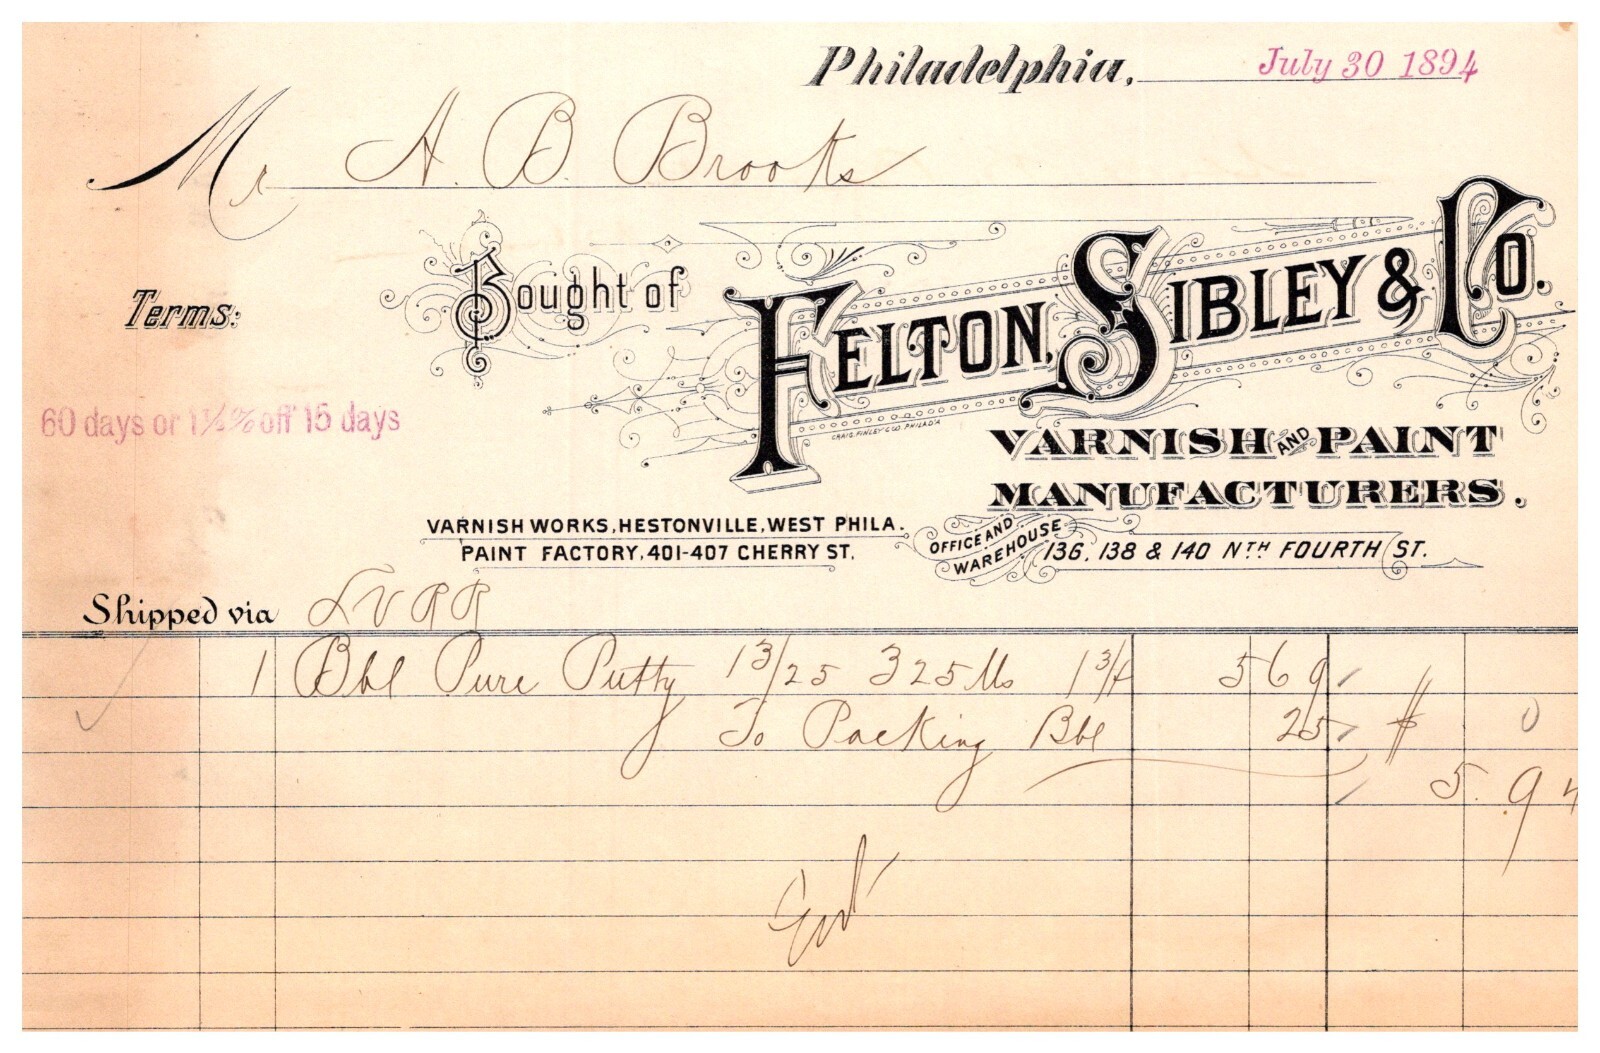 Philadelphia, July 30 1894
Mr A. B. Brooks
Terms: Bought of FELTON, SIBLEY & CO.
60 days or 1½% off 15 days
CRAIG, FINLEY & CO. PHILADA
VARNISH AND PAINT
MANUFACTURERS.
VARNISH WORKS, HESTONVILLE, WEST PHILA.
PAINT FACTORY, 401-407 CHERRY ST.
OFFICE AND WAREHOUSE 136, 138 & 140 NTH FOURTH ST.
Shipped via L V R R
1 Bbl Pure Putty 13/25 325 lbs 1 3/4 569
To Packing Bbl 25 $
5.94
Ent